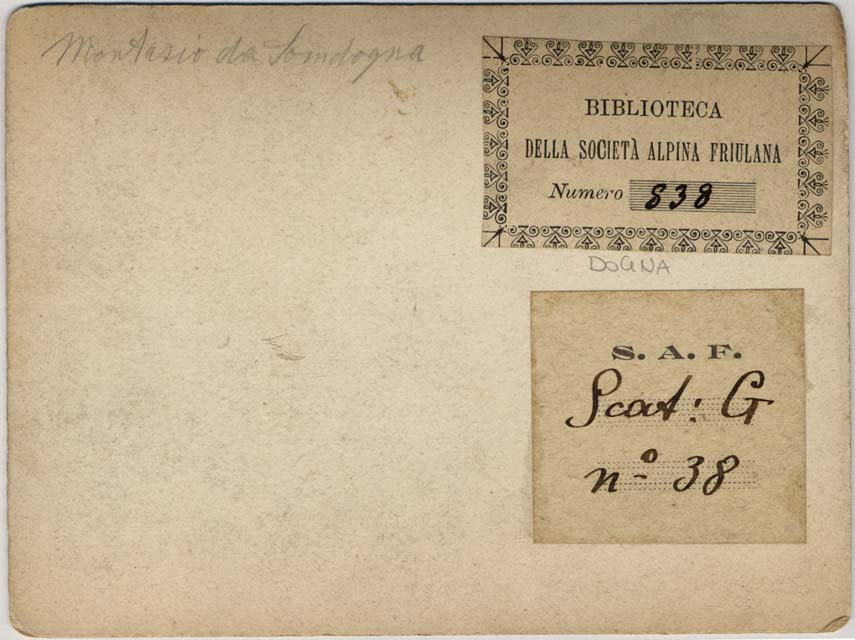 Montasio da Somdogna
BIBLIOTECA
DELLA SOCIETÀ ALPINA FRIULANA
Numero 838
DOGNA
S. A. F.
Scat: G
nº 38